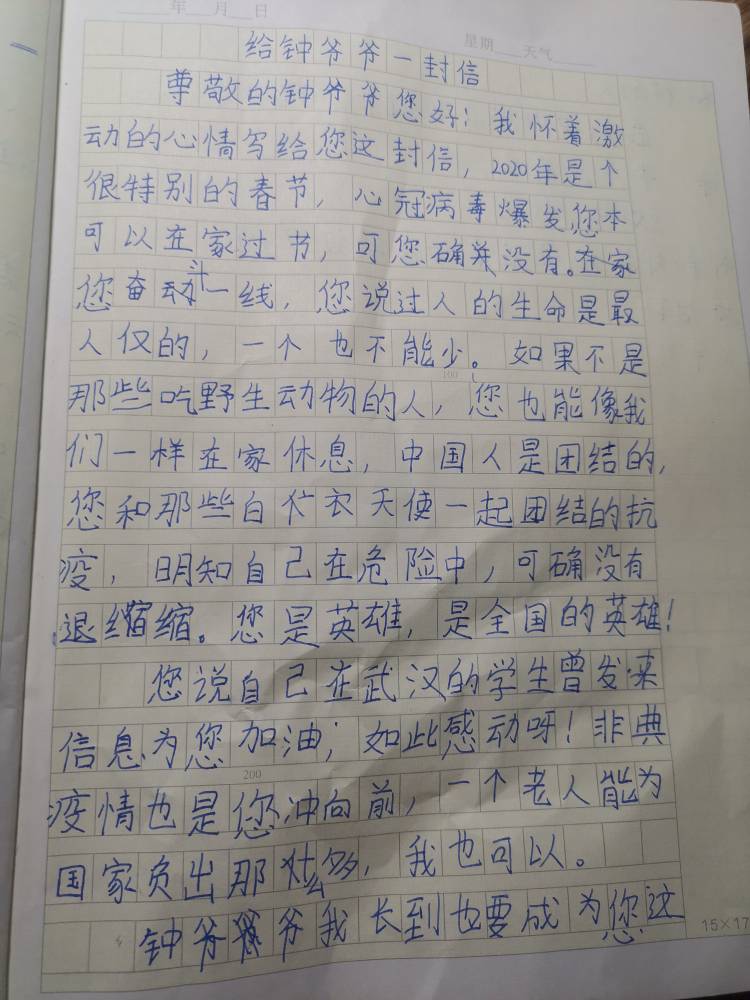 年 月 日
星期 天气
给钟爷爷一封信
尊敬的钟爷爷您好！我怀着激
动的心情写给您这封信，2020年是个
很特别的春节，心冠病毒爆发，您本
可以在家过节，可您确关没有。在家
您奋动斗一线，您说过人的生命是最
人仅的，一个也不能少。如果不是
100
那些吃野生动物的人，您也能像我
们一样在家休息，中国人是团结的，
您和那些白衣天使一起团结的抗
疫，明知自己在危险中，可确没有
退缩缩。您是英雄，是全国的英雄！
您说自己在武汉的学生曾发来
信息为您加油；如此感动呀！非典
200
疫情也是您冲向前，一个老人能为
国家负出那么多，我也可以。
钟爷爷我长到也要成为您这
15×17